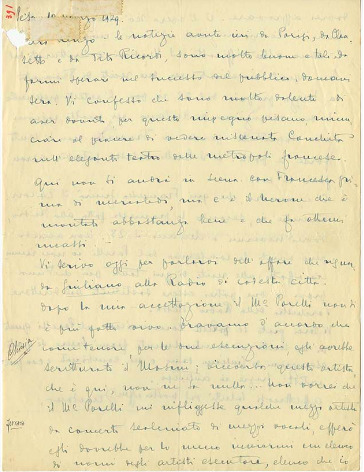 Pisa, 10 marzo 1929.
le notizie avute ieri da Parigi, da
setti e da Tito Ricordi, sono molto buone e tali da
farmi sperare nel successo del pubblico, domani
sera. Vi confesso che sono molto dolente di
aver dovuto, per questo impegno pisano, rinun
ciare al piacere di vedere in scena Conchita
sull'elegante teatro della metropoli francese.
Qui non si andrà in scena con Francesca pri
ma di mercoledì, ma c'è il Nerone che è
montato abbastanza bene e che fa ottimi
incassi.
Vi scrivo oggi per parlarvi dell'affare che riguar
da Giuliano alla Radio di codesta città.
Dopo la mia accettazione il Mº Parelli non si
è più fatto vivo. Eravamo d'accordo che
come tenore, per le due esecuzioni, egli avrebbe
scritturato il ; viceversa questo artista,
che è qui, non ne sa nulla... Non vorrei che
il Mº Parelli mi infliggesse qualche mezzo artista
da concerto di mezzi vocali
egli dovrebbe per lo meno inviarmi un elenco
di nomi degli artisti esecutori, elenco che io